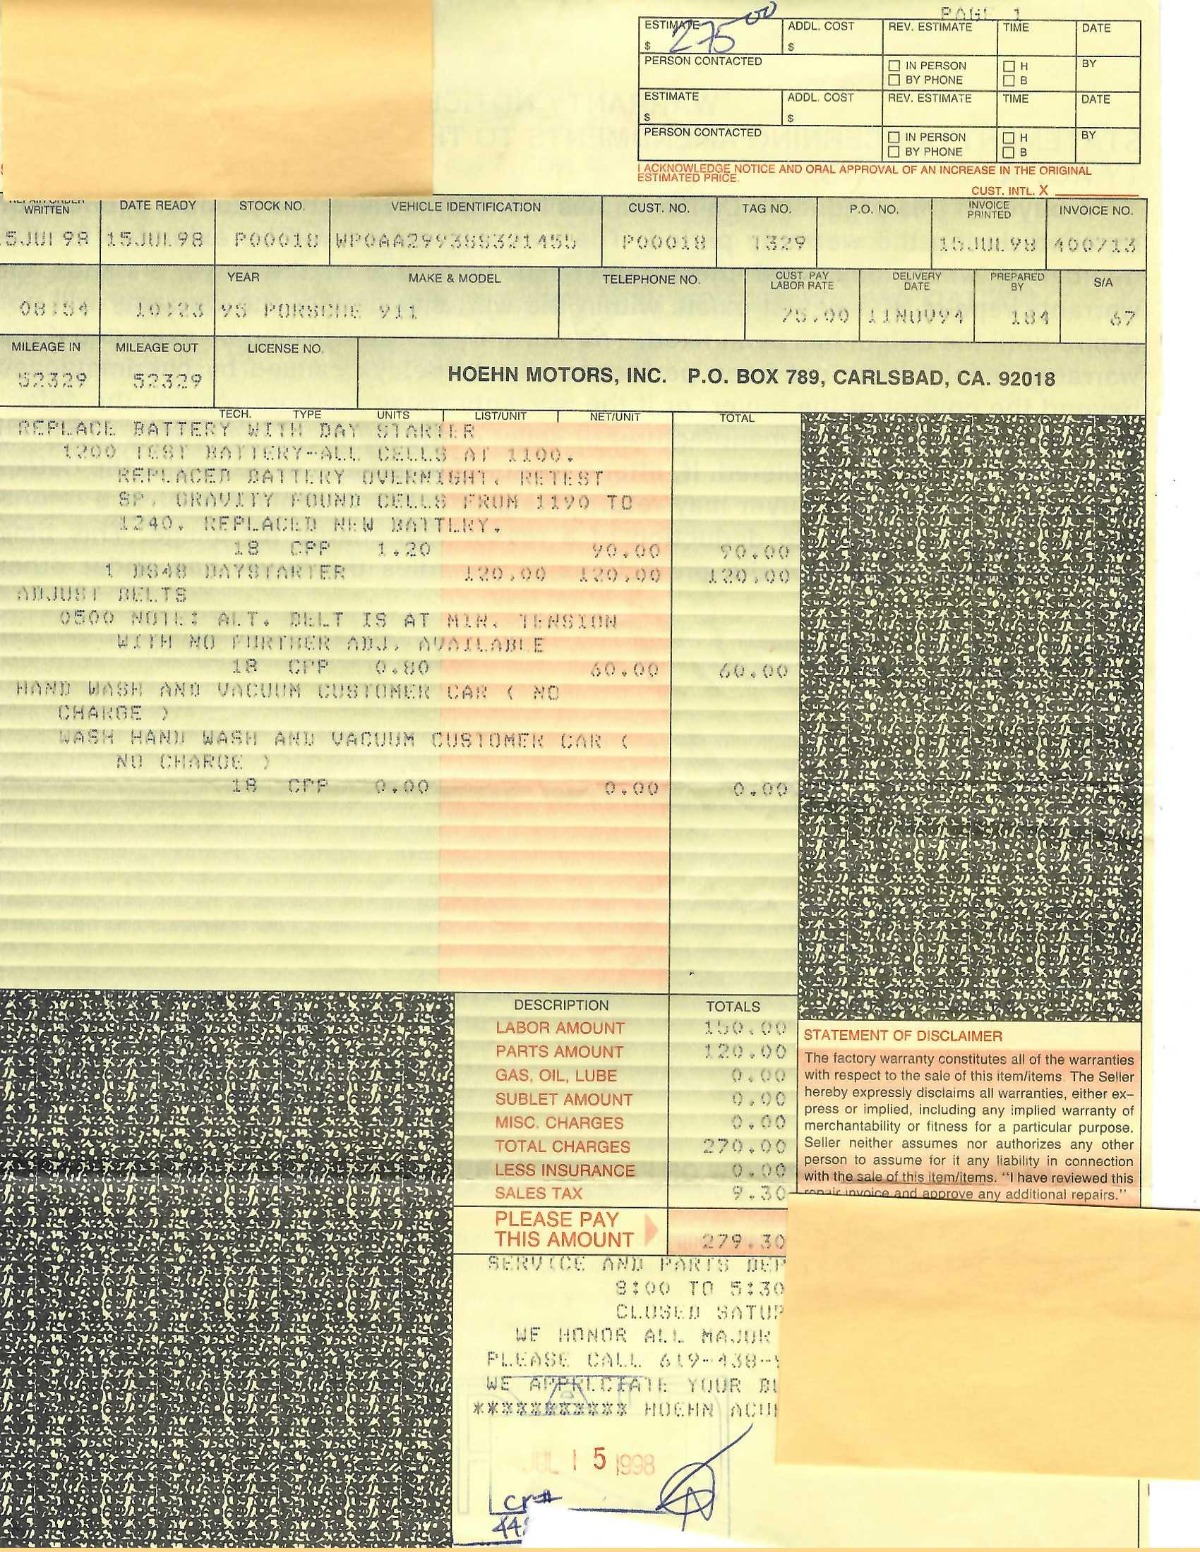 PAGE 1
ESTIMATE ADDL. COST REV. ESTIMATE TIME DATE
$ 275 00 $
PERSON CONTACTED IN PERSON H BY
BY PHONE B
ESTIMATE ADDL. COST REV. ESTIMATE TIME DATE
$ $
PERSON CONTACTED IN PERSON H BY
BY PHONE B
I ACKNOWLEDGE NOTICE AND ORAL APPROVAL OF AN INCREASE IN THE ORIGINAL
ESTIMATED PRICE.
CUST. INTL. X
WRITTEN DATE READY STOCK NO. VEHICLE IDENTIFICATION CUST. NO. TAG NO. P.O. NO. INVOICE PRINTED INVOICE NO.
5JUL98 15JUL98 P00018 WP0AA2993SS321455 P00018 T329 15JUL98 400713
YEAR MAKE & MODEL TELEPHONE NO. CUST. PAY LABOR RATE DELIVERY DATE PREPARED BY S/A
08:54 10:23 95 PORSCHE 911 75.00 11NOV94 184 67
MILEAGE IN MILEAGE OUT LICENSE NO.
52329 52329
HOEHN MOTORS, INC. P.O. BOX 789, CARLSBAD, CA. 92018
TECH. TYPE UNITS LIST/UNIT NET/UNIT TOTAL
REPLACE BATTERY WITH DAY STARTER
1200 TEST BATTERY-ALL CELLS AT 1100.
REPLACED BATTERY OVERNIGHT. RETEST
SP. GRAVITY FOUND CELLS FROM 1190 TO
1240. REPLACED NEW BATTERY.
18 CPP 1.20 90.00 90.00
1 DS48 DAYSTARTER 120.00 120.00 120.00
ADJUST BELTS
0500 NOTE: ALT. BELT IS AT MIN. TENSION
WITH NO FURTHER ADJ. AVAILABLE
18 CPP 0.80 60.00 60.00
HAND WASH AND VACUUM CUSTOMER CAR ( NO
CHARGE )
WASH HAND WASH AND VACUUM CUSTOMER CAR (
NO CHARGE )
18 CPP 0.00 0.00 0.00
DESCRIPTION TOTALS
LABOR AMOUNT 150.00
PARTS AMOUNT 120.00
GAS, OIL, LUBE 0.00
SUBLET AMOUNT 0.00
MISC. CHARGES 0.00
TOTAL CHARGES 270.00
LESS INSURANCE 0.00
SALES TAX 9.30
PLEASE PAY
THIS AMOUNT 279.30
STATEMENT OF DISCLAIMER
The factory warranty constitutes all of the warranties
with respect to the sale of this item/items. The Seller
hereby expressly disclaims all warranties, either ex-
press or implied, including any implied warranty of
merchantability or fitness for a particular purpose.
Seller neither assumes nor authorizes any other
person to assume for it any liability in connection
with the sale of this item/items. "I have reviewed this
repair invoice and approve any additional repairs."
SERVICE AND PARTS DEP
8:00 TO 5:30
CLOSED SATUR
WE HONOR ALL MAJOR
PLEASE CALL 619-438-
WE APPRECIATE YOUR BU
*********** HOEHN ACUR
JUL 15 1998